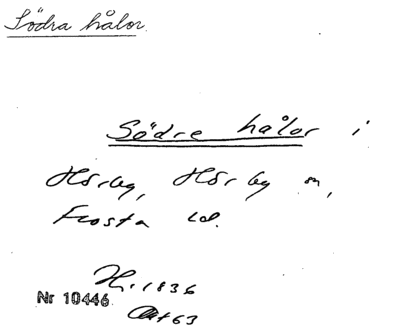 Södra hålor.
Södre hålor i
Hörby, Hörby sn,
Frosta hd.
H. 1836
Nr 10446
Akt 63